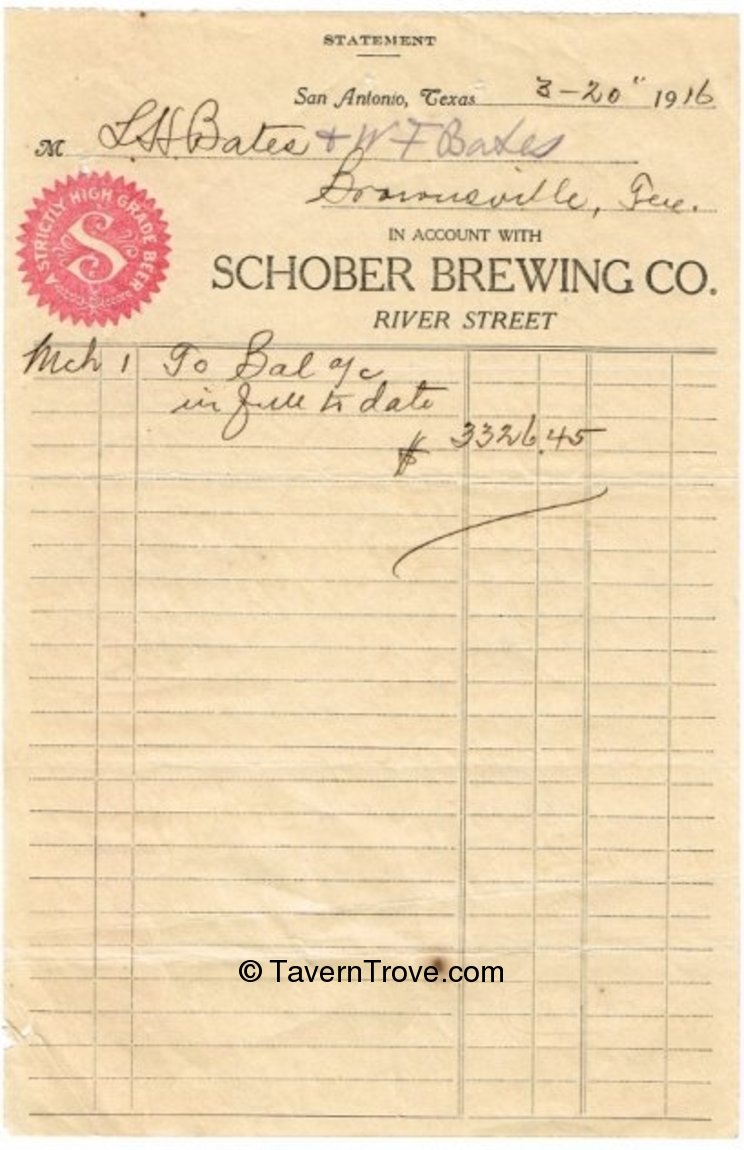 STATEMENT
San Antonio, Texas 3-20" 1916
M L.H. Bates & W F Bates
Brownsville, Tex.
A STRICTLY HIGH GRADE BEER
S
IN ACCOUNT WITH
SCHOBER BREWING CO.
RIVER STREET
Mch 1 To Bal a/c
in full to date
$ 3326.45
© TavernTrove.com